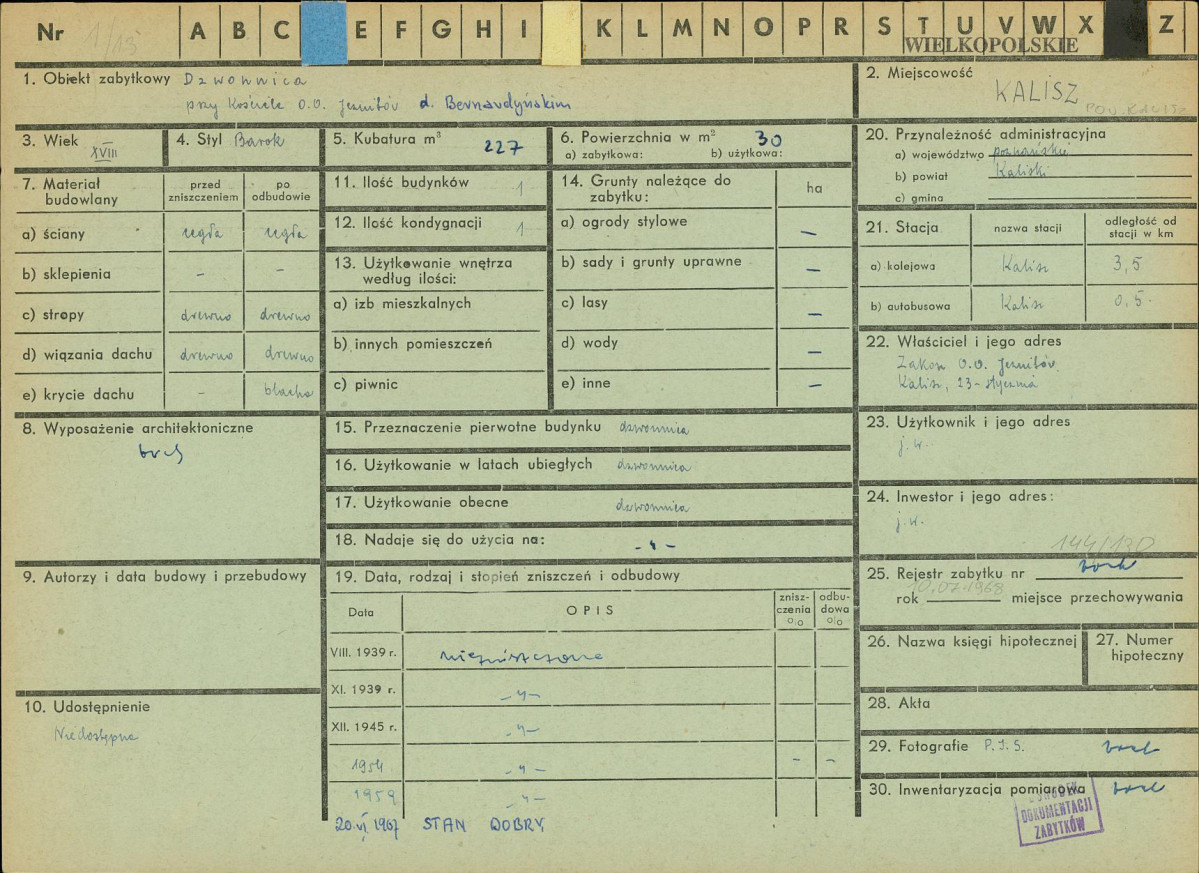 Nr 1/13 A B C E F G H I K L M N O P R S T U V W X Z
WIELKOPOLSKIE
1. Obiekt zabytkowy Dzwonnica
przy Kościele O.O. Jezuitów d. Bernardyńskim
2. Miejscowość
KALISZ
POW. KALISZ
3. Wiek XVIII
4. Styl Barok
5. Kubatura m³ 227
6. Powierzchnia w m² 30
a) zabytkowa: b) użytkowa:
20. Przynależność administracyjna
a) województwo poznańskie
b) powiat Kaliski
c) gmina
7. Materiał budowlany
przed zniszczeniem
po odbudowie
a) ściany cegła cegła
b) sklepienia – –
c) stropy drewno drewno
d) wiązania dachu drewno drewno
e) krycie dachu – blacha
11. Ilość budynków 1
12. Ilość kondygnacji 1
13. Użytkowanie wnętrza
według ilości:
a) izb mieszkalnych
b) innych pomieszczeń
c) piwnic
14. Grunty należące do
zabytku:
ha
a) ogrody stylowe –
b) sady i grunty uprawne –
c) lasy –
d) wody –
e) inne –
21. Stacja
nazwa stacji
odległość od
stacji w km
a) kolejowa Kalisz 3,5
b) autobusowa Kalisz 0,5.
22. Właściciel i jego adres
Zakon O.O. Jezuitów
Kalisz, 23-stycznia
8. Wyposażenie architektoniczne
brak
15. Przeznaczenie pierwotne budynku dzwonnica
16. Użytkowanie w latach ubiegłych dzwonnica
17. Użytkowanie obecne dzwonnica
18. Nadaje się do użycia na: -"-
23. Użytkownik i jego adres
j.w.
24. Inwestor i jego adres:
j.w.
144/130
25. Rejestr zabytku nr brak
10.07.1968
rok miejsce przechowywania
9. Autorzy i data budowy i przebudowy
19. Data, rodzaj i stopień zniszczeń i odbudowy
Data
OPIS
znisz-
czenia
%
odbu-
dowa
%
VIII. 1939 r. niezniszczona
XI. 1939 r. -"-
XII. 1945 r. -"-
1954 -"- – –
1959 -"-
20.VI.1967 STAN DOBRY
10. Udostępnienie
Niedostępna
26. Nazwa księgi hipotecznej
27. Numer
hipoteczny
28. Akta
29. Fotografie P.I.S. brak
30. Inwentaryzacja pomiarowa brak
OŚRODEK
DOKUMENTACJI
ZABYTKÓW